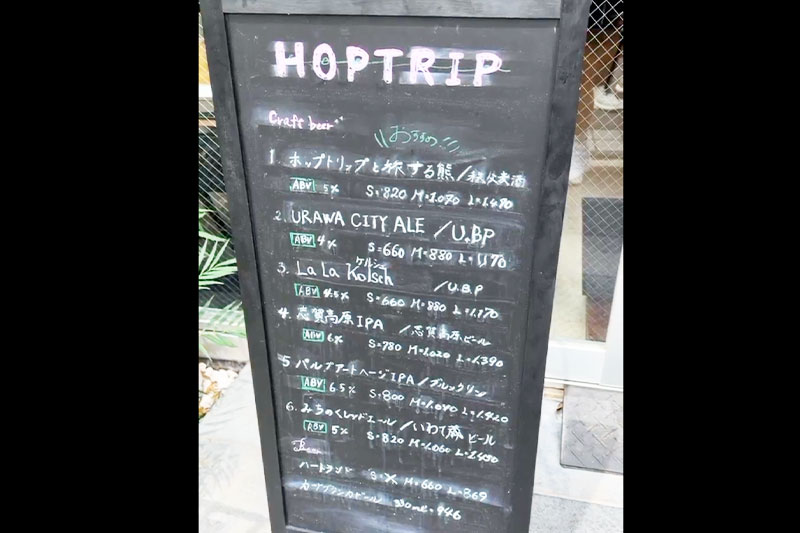 HOPTRIP
Craft beer
おすすめ!!
1. ホップトリップと旅する熊/秩父麦酒
ABV 5% S=820 M=1.070 L=1.470
2. URAWA CITY ALE /U.BP
ABV 4% S=660 M=880 L=1.170
ケルシュ
3. La La Kölsch /U.B.P
ABV 4.5% S=660 M=880 L=1.170
4. 志賀高原IPA /志賀高原ビール
ABV 6% S=780 M=1.020 L=1.390
5 パルプアートヘージIPA/ブルックリン
ABV 6.5% S=800 M=1.040 L=1.420
6. みちのくレッドエール/いわて蔵ビール
ABV 5% S=820 M=1.060 L=1.450
Beer
ハートランド S=X M=660 L=869
カサブランカビール 330ml=946